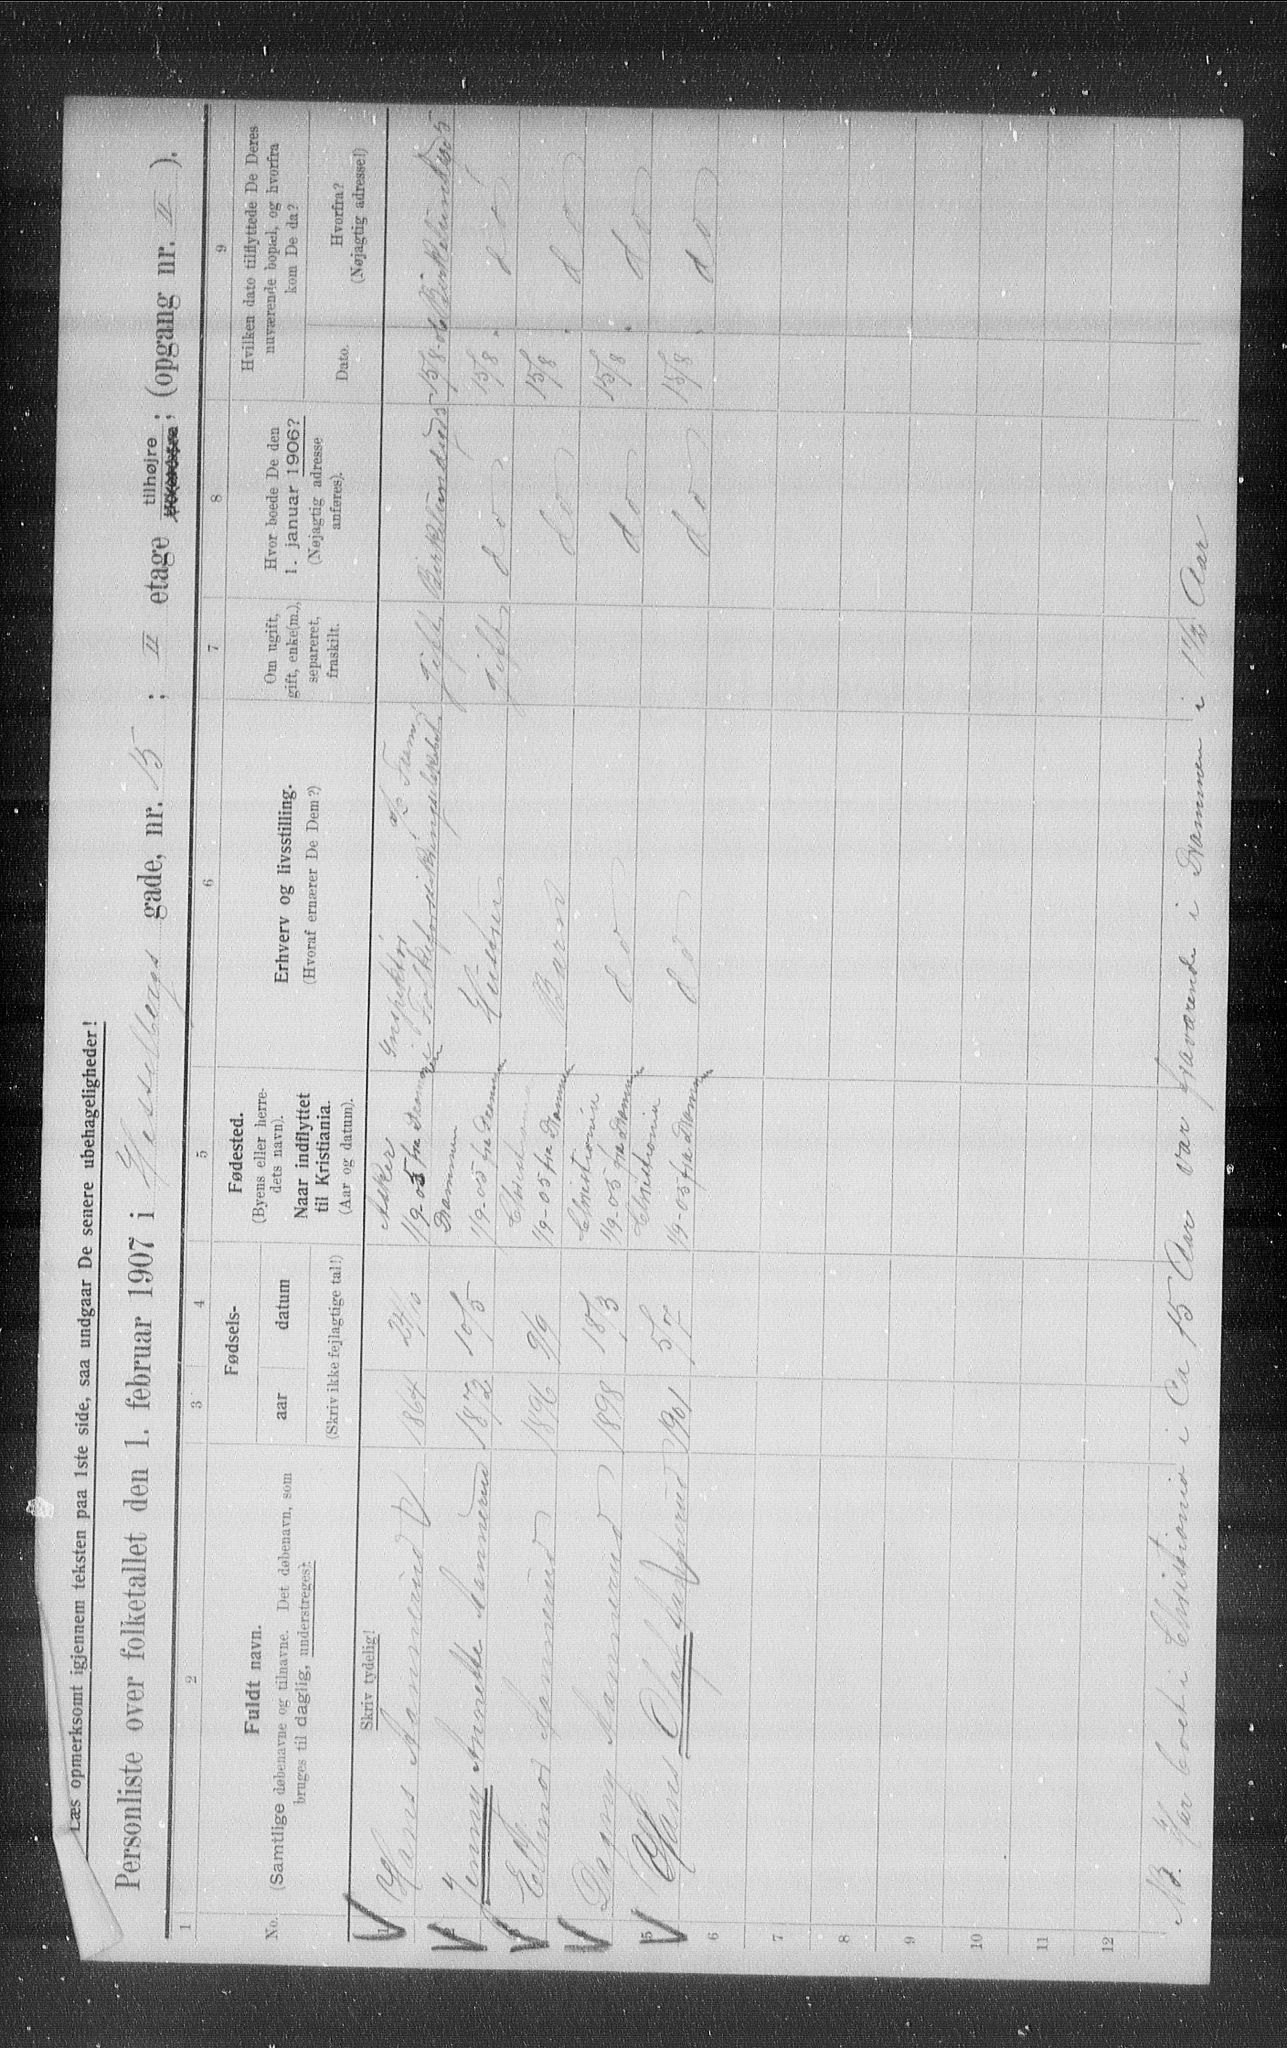 Læs opmerksomt igjennem teksten paa 1ste side, saa undgaar De senere ubehageligheder!
Personliste over folketallet den 1. februar 1907 i Hesselbergs gade, nr. 15 ; II etage tilhøjre ; (opgang nr. II ).
1 2 3 4 5 6 7 8 9
No.
Fuldt navn.
(Samtlige døbenavne og tilnavne. Det døbenavn, som
bruges til daglig, understreges).
Fødsels-
aar datum
(Skriv ikke fejlagtige tal!)
Fødested.
(Byens eller herre-
dets navn).
Naar indflyttet
til Kristiania.
(Aar og datum).
Erhverv og livsstilling.
(Hvoraf ernærer De Dem?)
Om ugift,
gift, enke(m.),
separeret,
fraskilt.
Hvor boede De den
1. januar 1906?
(Nøjagtig adresse
anføres).
Hvilken dato tilflyttede De Deres
nuværende bopæl, og hvorfra
kom De da?
Dato.
Hvorfra?
(Nøjagtig adresse!)
Skriv tydelig!
1 Hans 1864 Asker 1/9-05 fra Drammen Inspektør i gift 15/8
2 Jenny Annette 1872 10/5 Drammen 1/9-05 fra Drammen Hustru gift do 15/8 " do
3 Ellinor 1896 9/9 1/9-05 fra Drammen Barn do 15/8 " do
4 Dagny 1898 18/3 Christiania 1/9-05 fra Drammen do do 15/8 " do
5 Hans Olaf 1901 5/7 Christiania 1/9-05 fra Drammen do do 15/8 " do
6
7
8
9
10
11
12
NB. Har boet i Christiania i Ca 15 Aar var fraværende i Drammen i 1½ Aar